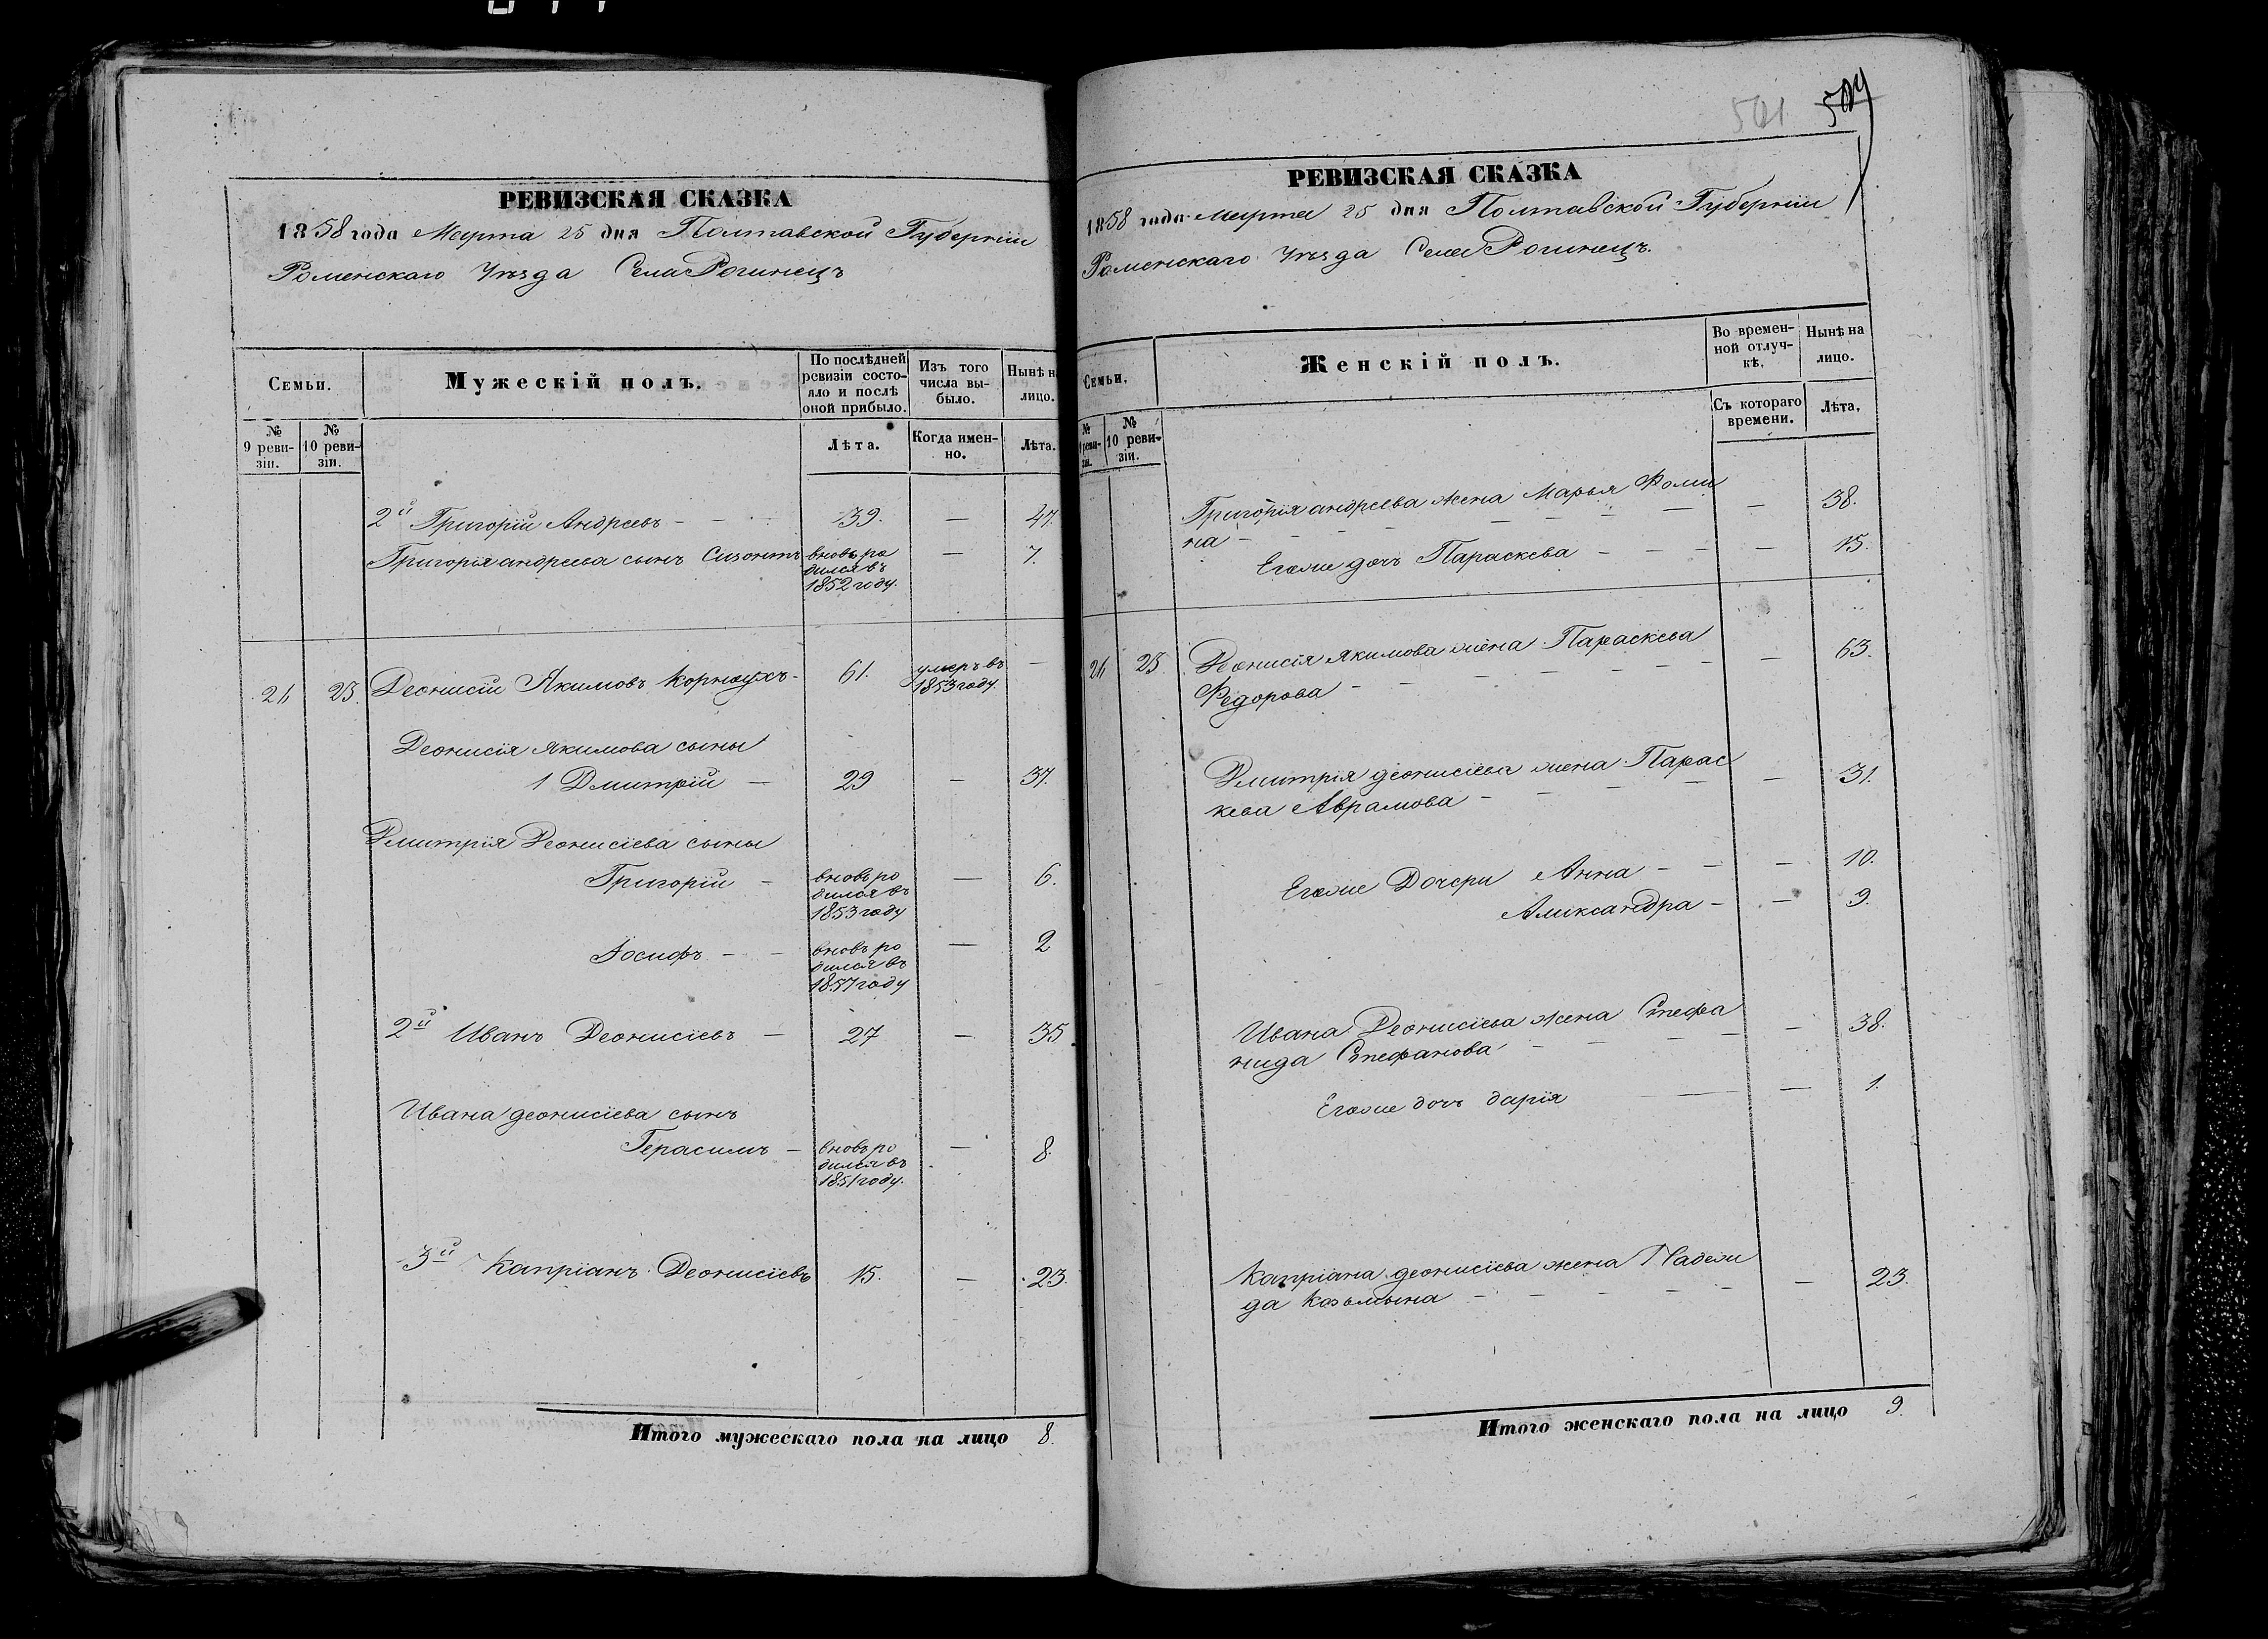 РЕВИЗСКАЯ СКАЗКА
1858 года Марта 25 дня Полтавской Губерніи
Роменскаго Уѣзда Села Рогинецъ
Семьи.
Мужескій полъ.
По послѣдней ревизіи состояло и послѣ оной прибыло.
Изъ того числа выбыло.
Нынѣ на лицо.
№ 9 ревизіи.
№ 10 ревизіи.
Лѣта.
Когда именно.
Лѣта.
2й Григорій Андреевъ - 39. — 47.
Григорія андреева сынъ Сизонтъ вновь ро — 7.
дился въ
1852 году.
26 25. Деонисій Якимовъ Корноухъ - 61. умеръ въ —
1853 году.
Деонисія Якимова сыны
1 Дмитрій — 29 — 37.
Дмитрія Деонисіева сыны
Григорій - вновь ро — 6.
дился въ
1853 году
Іосифъ - - вновь ро — 2
дился въ
1857 году
2й Иванъ Деонисіевъ — 27 — 35
Ивана деонисіева сынъ
Герасимъ — вновь ро — 8.
дился въ
1851 году.
3й Капріанъ Деонисіевъ 15. — 23.
Итого мужескаго пола на лицо 8.
501 504
РЕВИЗСКАЯ СКАЗКА
1858 года Марта 25 дня Полтавской Губерніи
Роменскаго Уѣзда Села Рогинецъ.
Семьи.
Женскій полъ.
Во временной отлучкѣ.
Нынѣ на лицо.
№ 9 ревизіи.
№ 10 ревизіи.
Съ котораго времени.
Лѣта.
Григорія андреева жена Марья Фоми — 38.
на -
Егоже дочь Параскева - — 15.
26 25. Деонисія Якимова жена Параскева — 63.
Федорова -
Дмитрія деонисіева жена Парас — 31.
кева Аврамова -
Егоже Дочери Анна - — 10.
Александра - — 9.
Ивана Деонисіева жена Стефа — 38.
нида Стефанова -
Егоже дочь дарія — 1.
Капріана деонисіева жена Надеж — 23.
да Козьмина -
Итого женскаго пола на лицо 9.